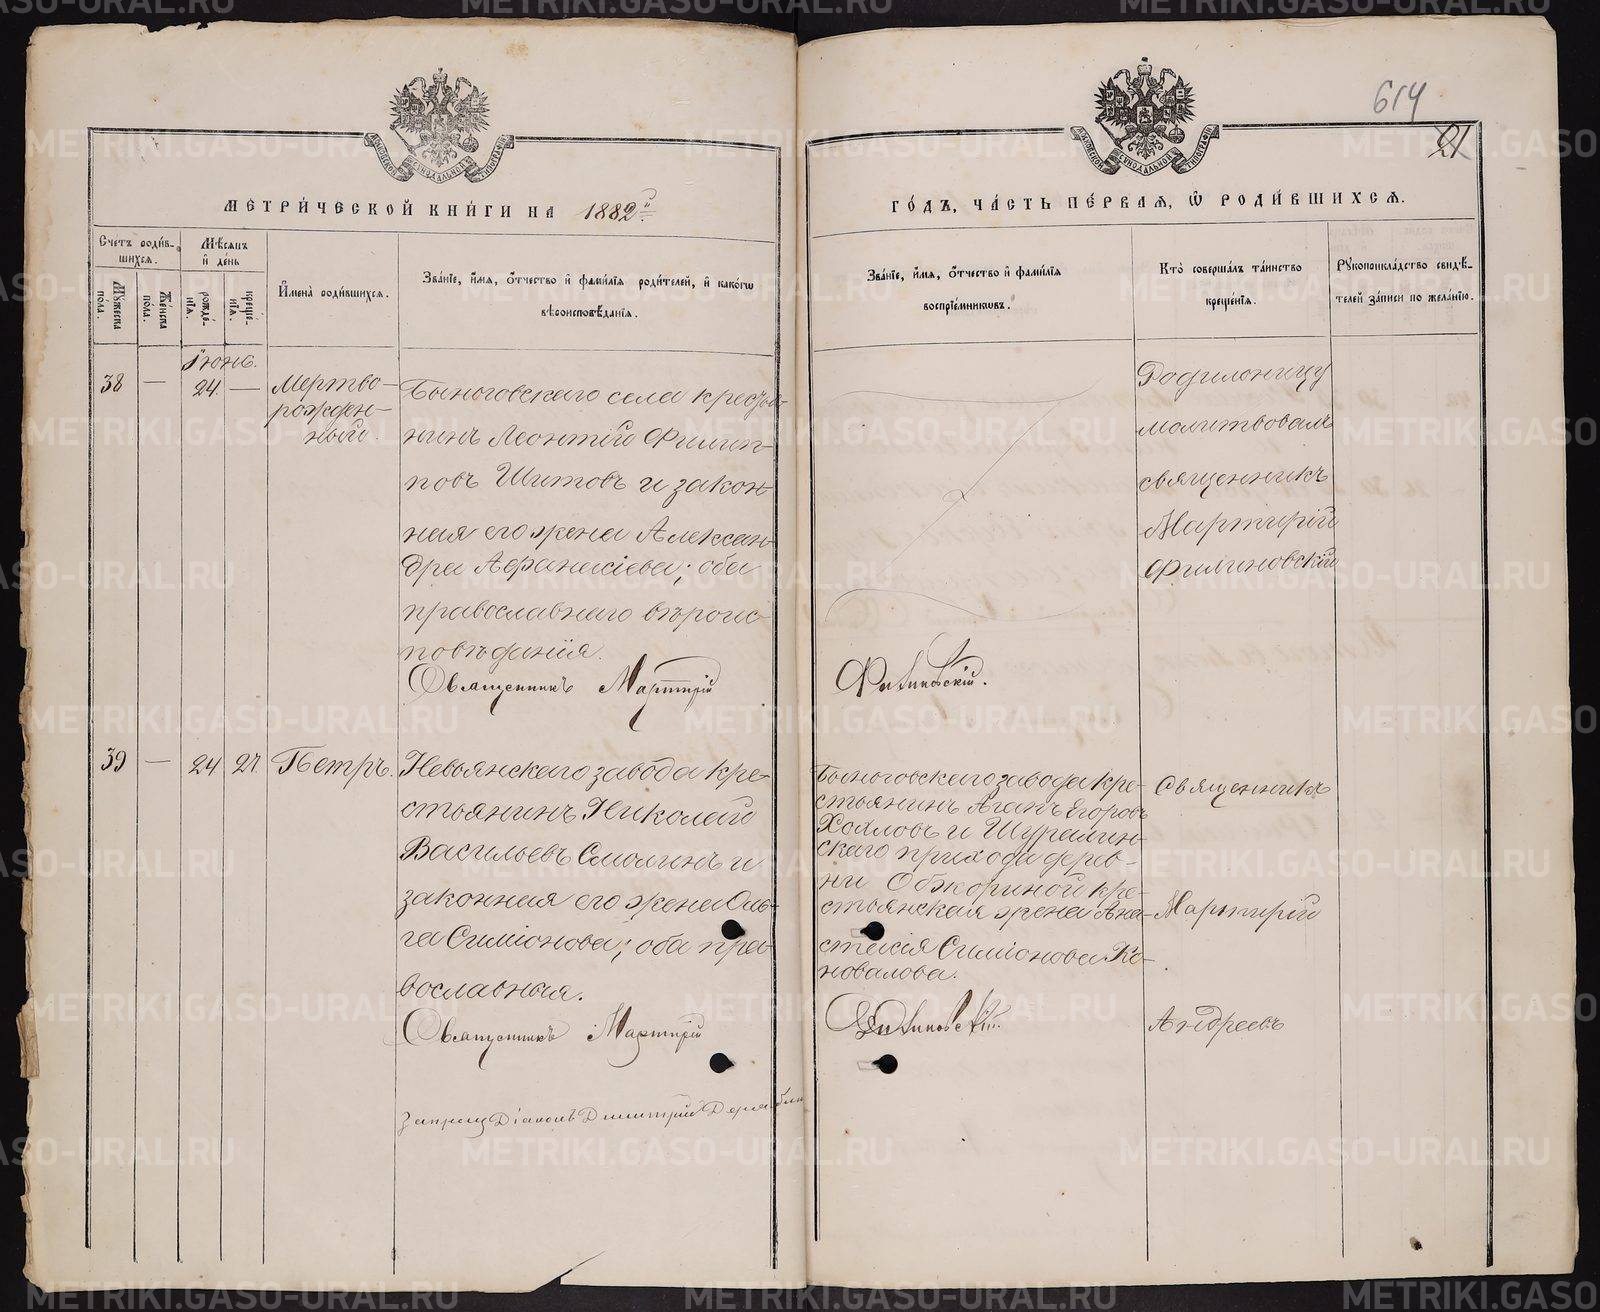 614
21
МЕТРИ́ЧЕСКОЙ КНИ́ГИ НА 1882й
ГО́ДЪ, ЧА́СТЬ ПЕ́РВАЯ, Ѿ РОДИ́ВШИХСЯ.
Счетъ роди́в-
шихся.
Мѣсяцъ
и де́нь
Му́жеска
пола.
Же́нска
пола.
рожде́-
нїя.
креще́-
нїя.
Имена̀ роди́вшихся.
Зва́нїе, и́мя, о́тчество и фами́лїя роди́телей, и како́гѡ
вѣроисповѣ́данїя.
Зва́нїе, и́мя, о́тчество и фами́лїя
воспрїе́мниковъ.
Кто̀ соверша́лъ та́инство
креще́нїя.
Рукоприкла́дство свидѣ́-
телей за́писи по жела́нїю.
Іюнь.
38 — 24. —
Мертво-
рожден-
ный.
Быньговскаго села крестья-
нинъ Леонтій Филип-
повъ Шитовъ и закон-
ная его жена Алексан-
дра Афанасіева; оба
православнаго вѣроис-
повѣданія.
Священникъ Мартирій
Филиновскій.
Родильницу
молитвовалъ
священникъ
Мартирій
Филиновскій
39 — 24 27
Петръ.
Невьянскаго завода кре-
стьянинъ Николай
Васильевъ Смолинъ и
законная его жена Оль-
га Симіонова; оба пра-
вославныя.
Священникъ Мартирій
Филиновскій.
Быньговскаго завода кре-
стьянинъ Агапъ Егоровъ
Хохловъ и Шуралин-
скаго прихода дерев-
ни Обжориной кре-
стьянская жена Ана-
стасія Симіонова Ко-
новалова.
Священникъ
Мартирій
Андреевъ
Запрещ Діаконъ Димитрій
METRIKI.GASO-URAL.RU